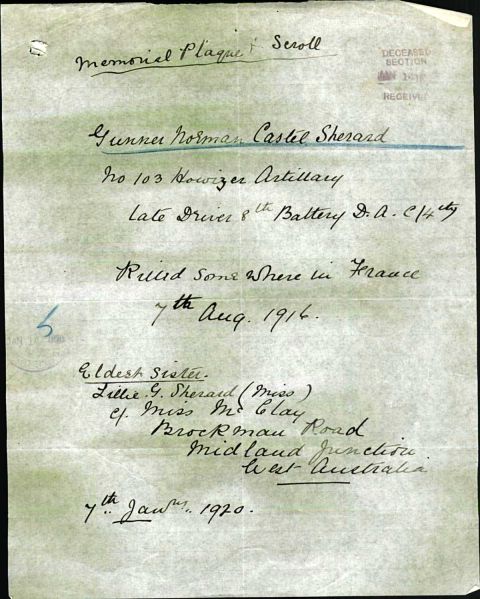 Memorial Plaque & Scroll
DECEASED
SECTION
JAN
RECEIVED
Gunner Norman Castel Sherard
No 103 Howizer Artillary
late Driver 8th Battery D.A.C/4th
Killed Some where in France
7th Aug. 1916.
5
Eldest Sister.
Lillie. G. Sherard (Miss)
c/. Miss McClay
Brockman Road
Midland Junction
West Australia
7th Janry. 1920.